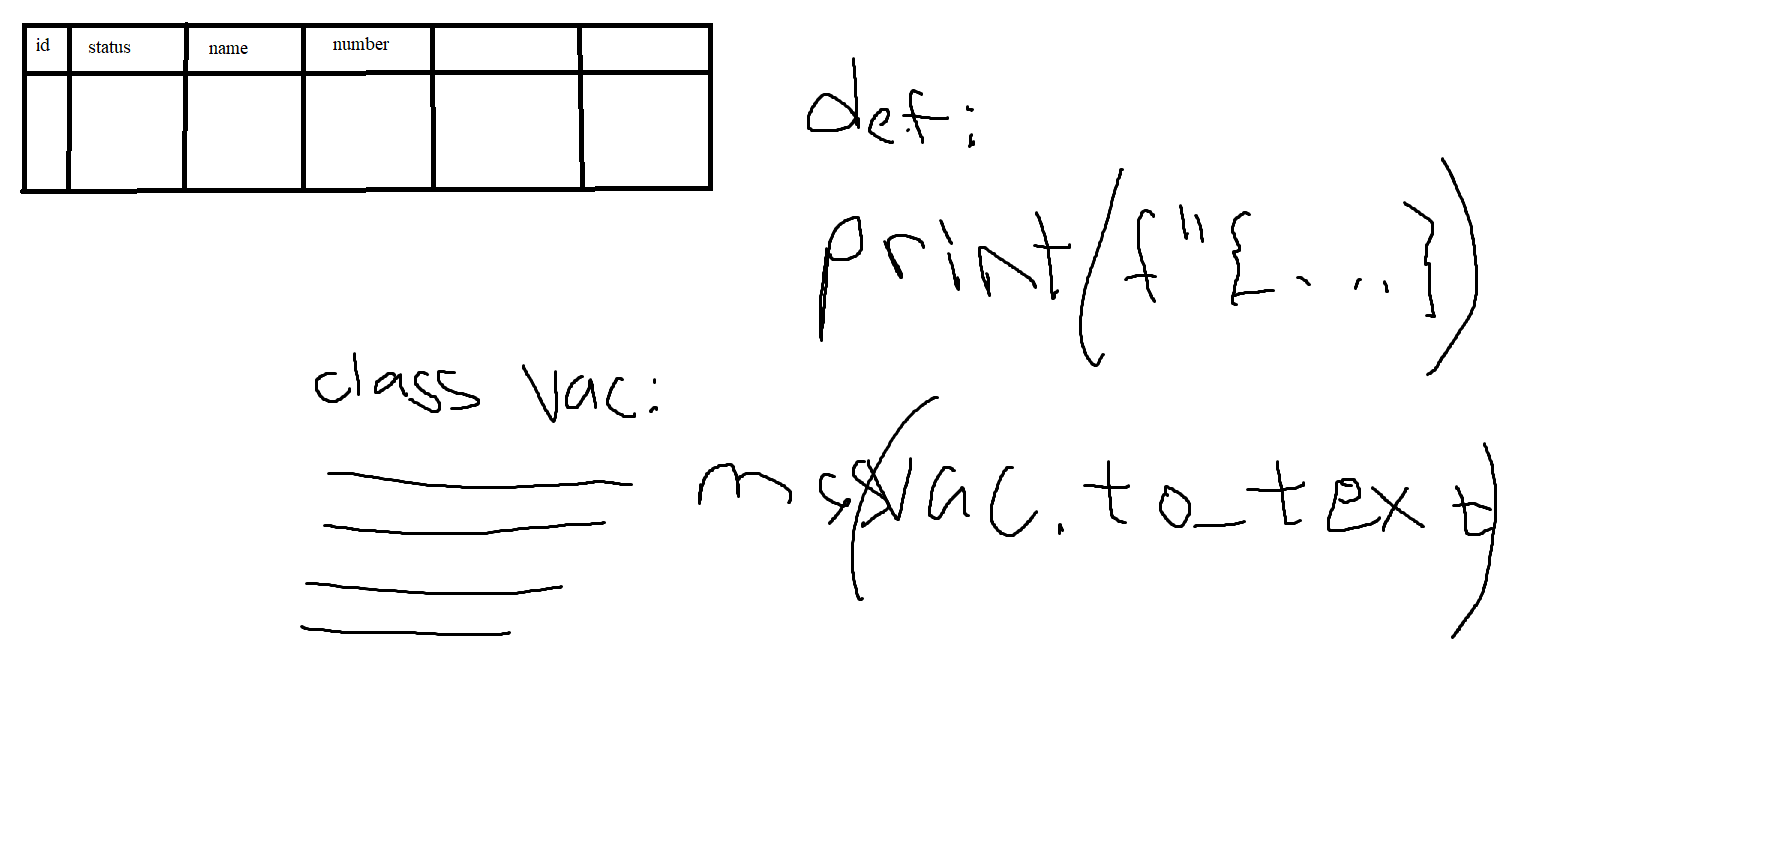 id status name number
def:
print(f"{...})
class vac:
msg(vac.to_text)